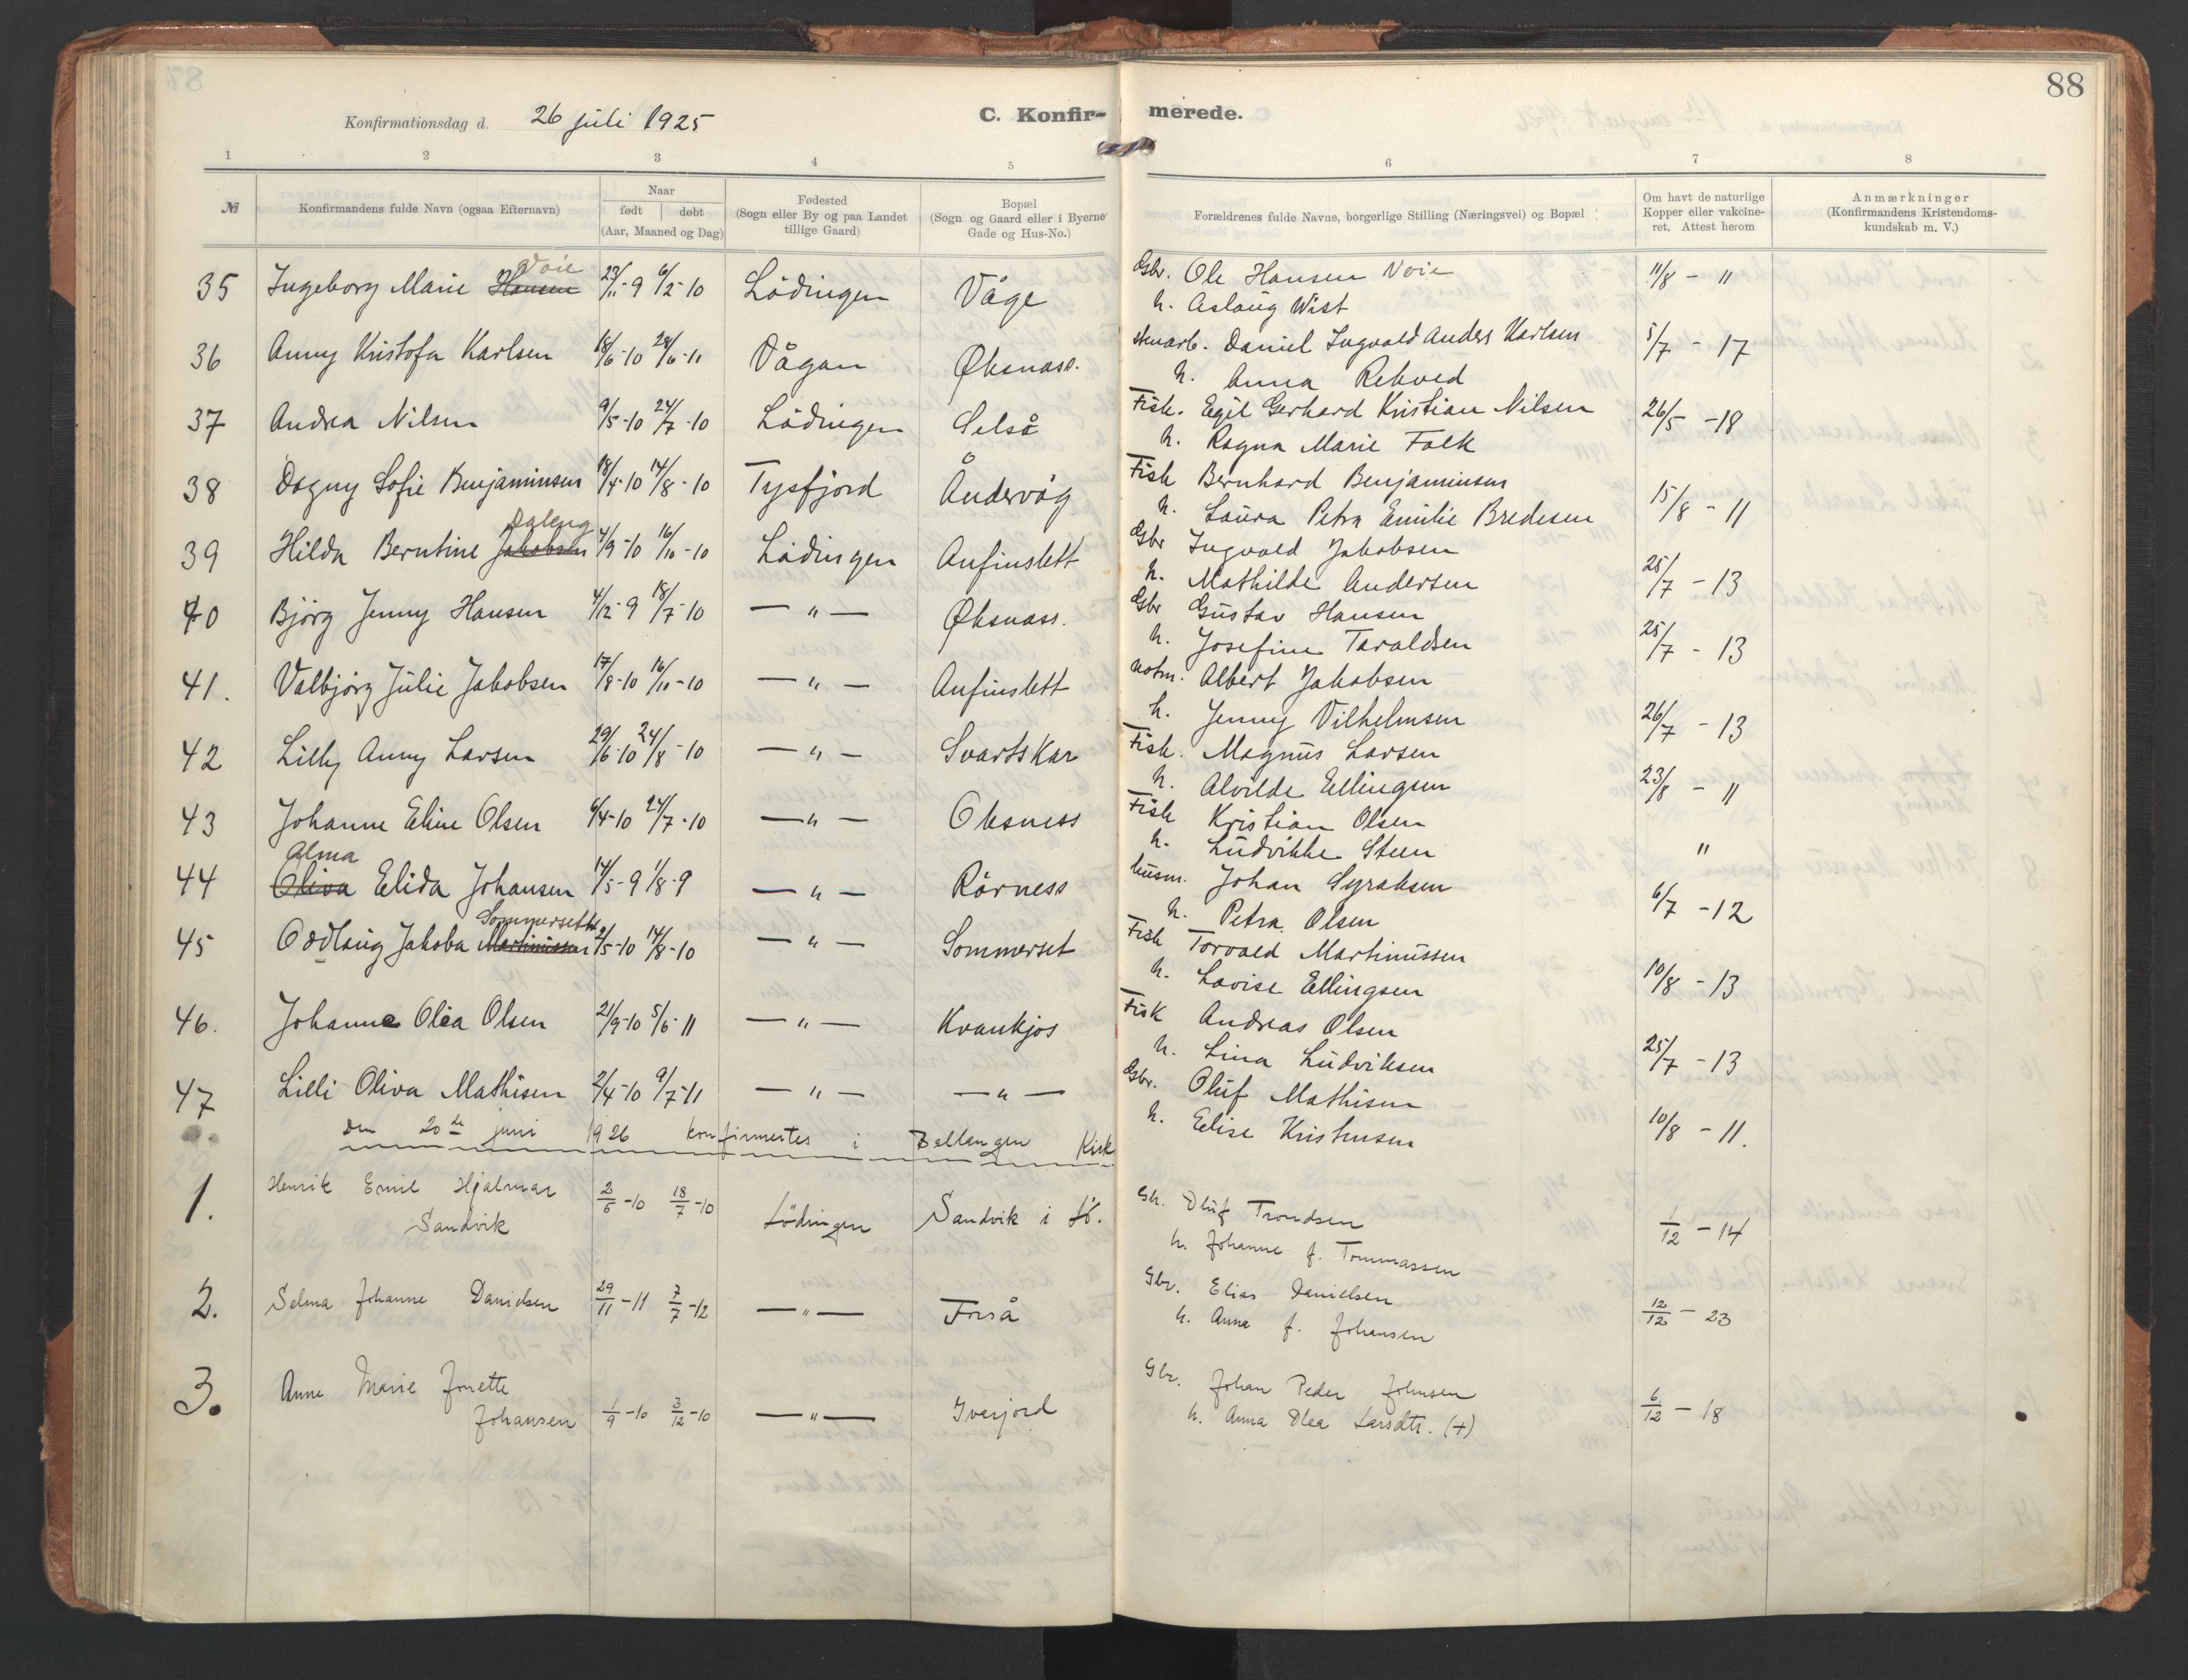 88
Konfirmationsdag d. 26 juli 1925
C. Konfir- merede.
1 2 3 4 5 6 7 8
№
Konfirmandens fulde Navn (ogsaa Efternavn)
Naar
født | døbt
(Aar, Maaned og Dag)
Fødested
(Sogn eller By og paa Landet
tillige Gaard)
Bopæl
(Sogn og Gaard eller i Byerne
Gade og Hus-No.)
Forældrenes fulde Navne, borgerlige Stilling (Næringsvei) og Bopæl
Om havt de naturlige
Kopper eller vakcine-
ret. Attest herom
Anmærkninger
(Konfirmandens Kristendoms-
kundskab m. V.)
Voie
35 Ingeborg Marie Hansen 23/11-9 6/2-10 Lödingen Våge Gbr. Ole Hansen Voie 11/8 - 11
h. Aslaug Wist
36 Anny Kristofa Karlsen 18/6-10 28/6-11 Vågan Øksnæss. Daniel Ingvald Anders Karlsen 5/7 - 17
h. Anna Rekved
37 Andrea Nilsen 9/5-10 24/7-10 Lödingen Selså Fisk. Egil Gerhard Kristian Nilsen 26/5 - 18
h. Ragna Marie Falk
38 Dagny Sofie Benjaminsen 18/4-10 14/8-10 Tysfjord Åndervåg Fisk Bernhard Benjaminsen 15/8 - 11
h. Laura Petra Emilie Bredesen
Daleng
39 Hilda Berntine Jakobsen 4/9-10 16/10-10 Lödingen Anfinslett Gbr Ingvald Jakobsen 25/7 - 13
h. Mathilde Andersen
40 Bjørg Jenny Hansen 4/12-9 18/7-10 — " — Øksnass. Gbr Gustav Hansen 25/7 - 13
h. Josefine Taraldsen
41. Valbjørg Julie Jakobsen 17/8-10 16/10-10 — " — Anfinslett Albert Jakobsen 26/7 - 13
h. Jenny Vilhelmsen
42 Lilly Anny Larsen 29/6-10 24/8-10 — " — Svartskar Fisk. Magnus Larsen 23/8 - 11
h. Alvilde Ellingsen
43 Johanne Eline Olsen 6/4-10 24/7-10 — " — Oksness Fisk Kristian Olsen "
h. Ludvikke Steen
Alma
44 Oliva Elida Johansen 14/5-9 1/8-9 — " — Rörness husm. Johan Syraksen 6/7 - 12
h. Petra Olsen
Sommerseth
45 Oddlaug Jakoba Martinussen 2/5-10 14/8-10 — " — Sommerset Fisk Torvald Martinussen 10/8 - 13
h. Lovise Ellingsen
46. Johanne Olea Olsen 21/9-10 5/6-11 — " — Kvankjos Fisk Andreas Olsen 25/7 - 13
h. Lina Ludviksen
47 Lilli Oliva Mathisen 2/4-10 9/7-11 — " — — " — Gbr. Oluf Mathisen 10/8 - 11.
h. Elise Kristensen
den 20de juni 1926 konfirmertes i Ballangen Kirk
1. Henrik Emil Hjalmar 2/5-10 18/7-10 Lödingen Sandvik i Lö. Gbr. Oluf Trondsen 1/12 - 14
Sandvik h. Johanne f. Tommassen
2. Selma Johanne Danielsen 29/11-11 7/7-12 — " — Forså Gbr. Elias Danielsen 12/12 - 23
h. Anna f. Johansen
3. Anne Marie Jonette Gbr. Johan Peder Johnsen
Johansen 1/9-10 3/12-10 — " — Iverjord h. Anna Olea Larsdtr. (+) 6/12 - 18